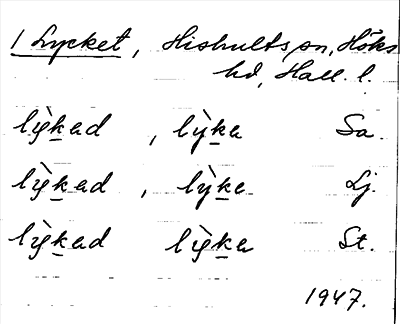 1 Lycket, Hishults sn, Höks
hd, Hall. l.
lỳkad , lỳka Sa.
lỳkad , lỳka Lj.
lỳkad lỳka St.
1947.